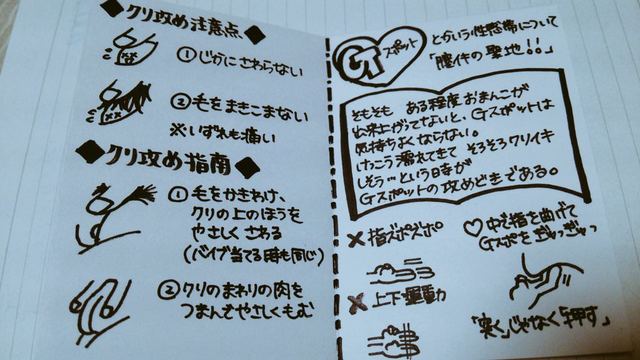 ◆クリ攻め注意点◆
①じかにさわらない
②毛をまきこまない
※いずれも痛い
◆クリ攻め指南◆
①毛をかきわけ、
クリの上のほうを
やさしくさわる
(バイブ当てる時も同じ)
②クリのまわりの肉を
つまんでやさしくもむ
Gスポット
とかいう性感帯について
「膣イキの聖地!!」
そもそも ある程度おまんこが
出来上がってないと、Gスポットは
気持ちよくならない。
けっこう濡れてきて そろそろクリイキ
しそう…という日寺が
Gスポットの攻めどきである。
×指ズボズボ
×上下運動
♡中で指を曲げて
Gスポをギュッギュッ
「突く」じゃなく「押す」